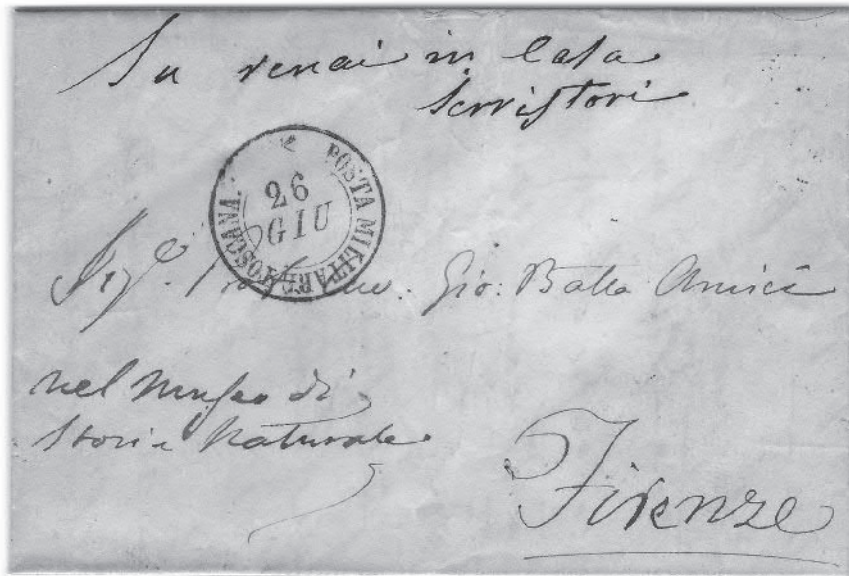 Su renai in Casa
Serristori
POSTA MILITARE TOSCANA.
26
GIU
Sigr. Gio: Batta Amici
nel Museo di
Storia Naturale
Firenze